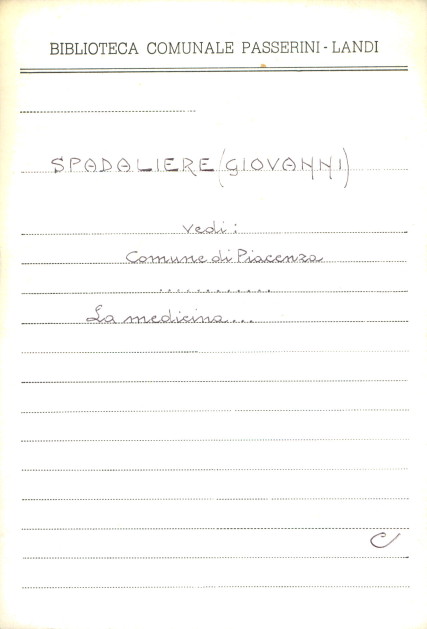 BIBLIOTECA COMUNALE PASSERINI - LANDI
SPADALIERE (GIOVANNI)
Vedi:
Comune di Piacenza
............
La medicina...
C